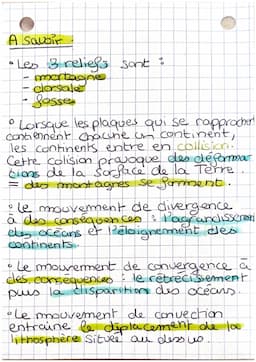 A savoir
• Les 3 reliefs sont :
- montagne
- dorsale
- fosse
• Lorsque les plaques qui se rapprochent
contiennent chacune un continent,
les continents entre en collision.
Cette colision provoque des déforma
tions de la surface de la Terre.
= des montagnes se forment.
• le mouvement de divergence
à des conséquences : l'agrandissement
des océans et l'éloignement des
continents.
• Le mouvement de convergence à
des conséquences : le rétrécissement
puis la disparition des océans.
• Le mouvement de convection
entraine le déplacement de la
lithosphère située au dessus.